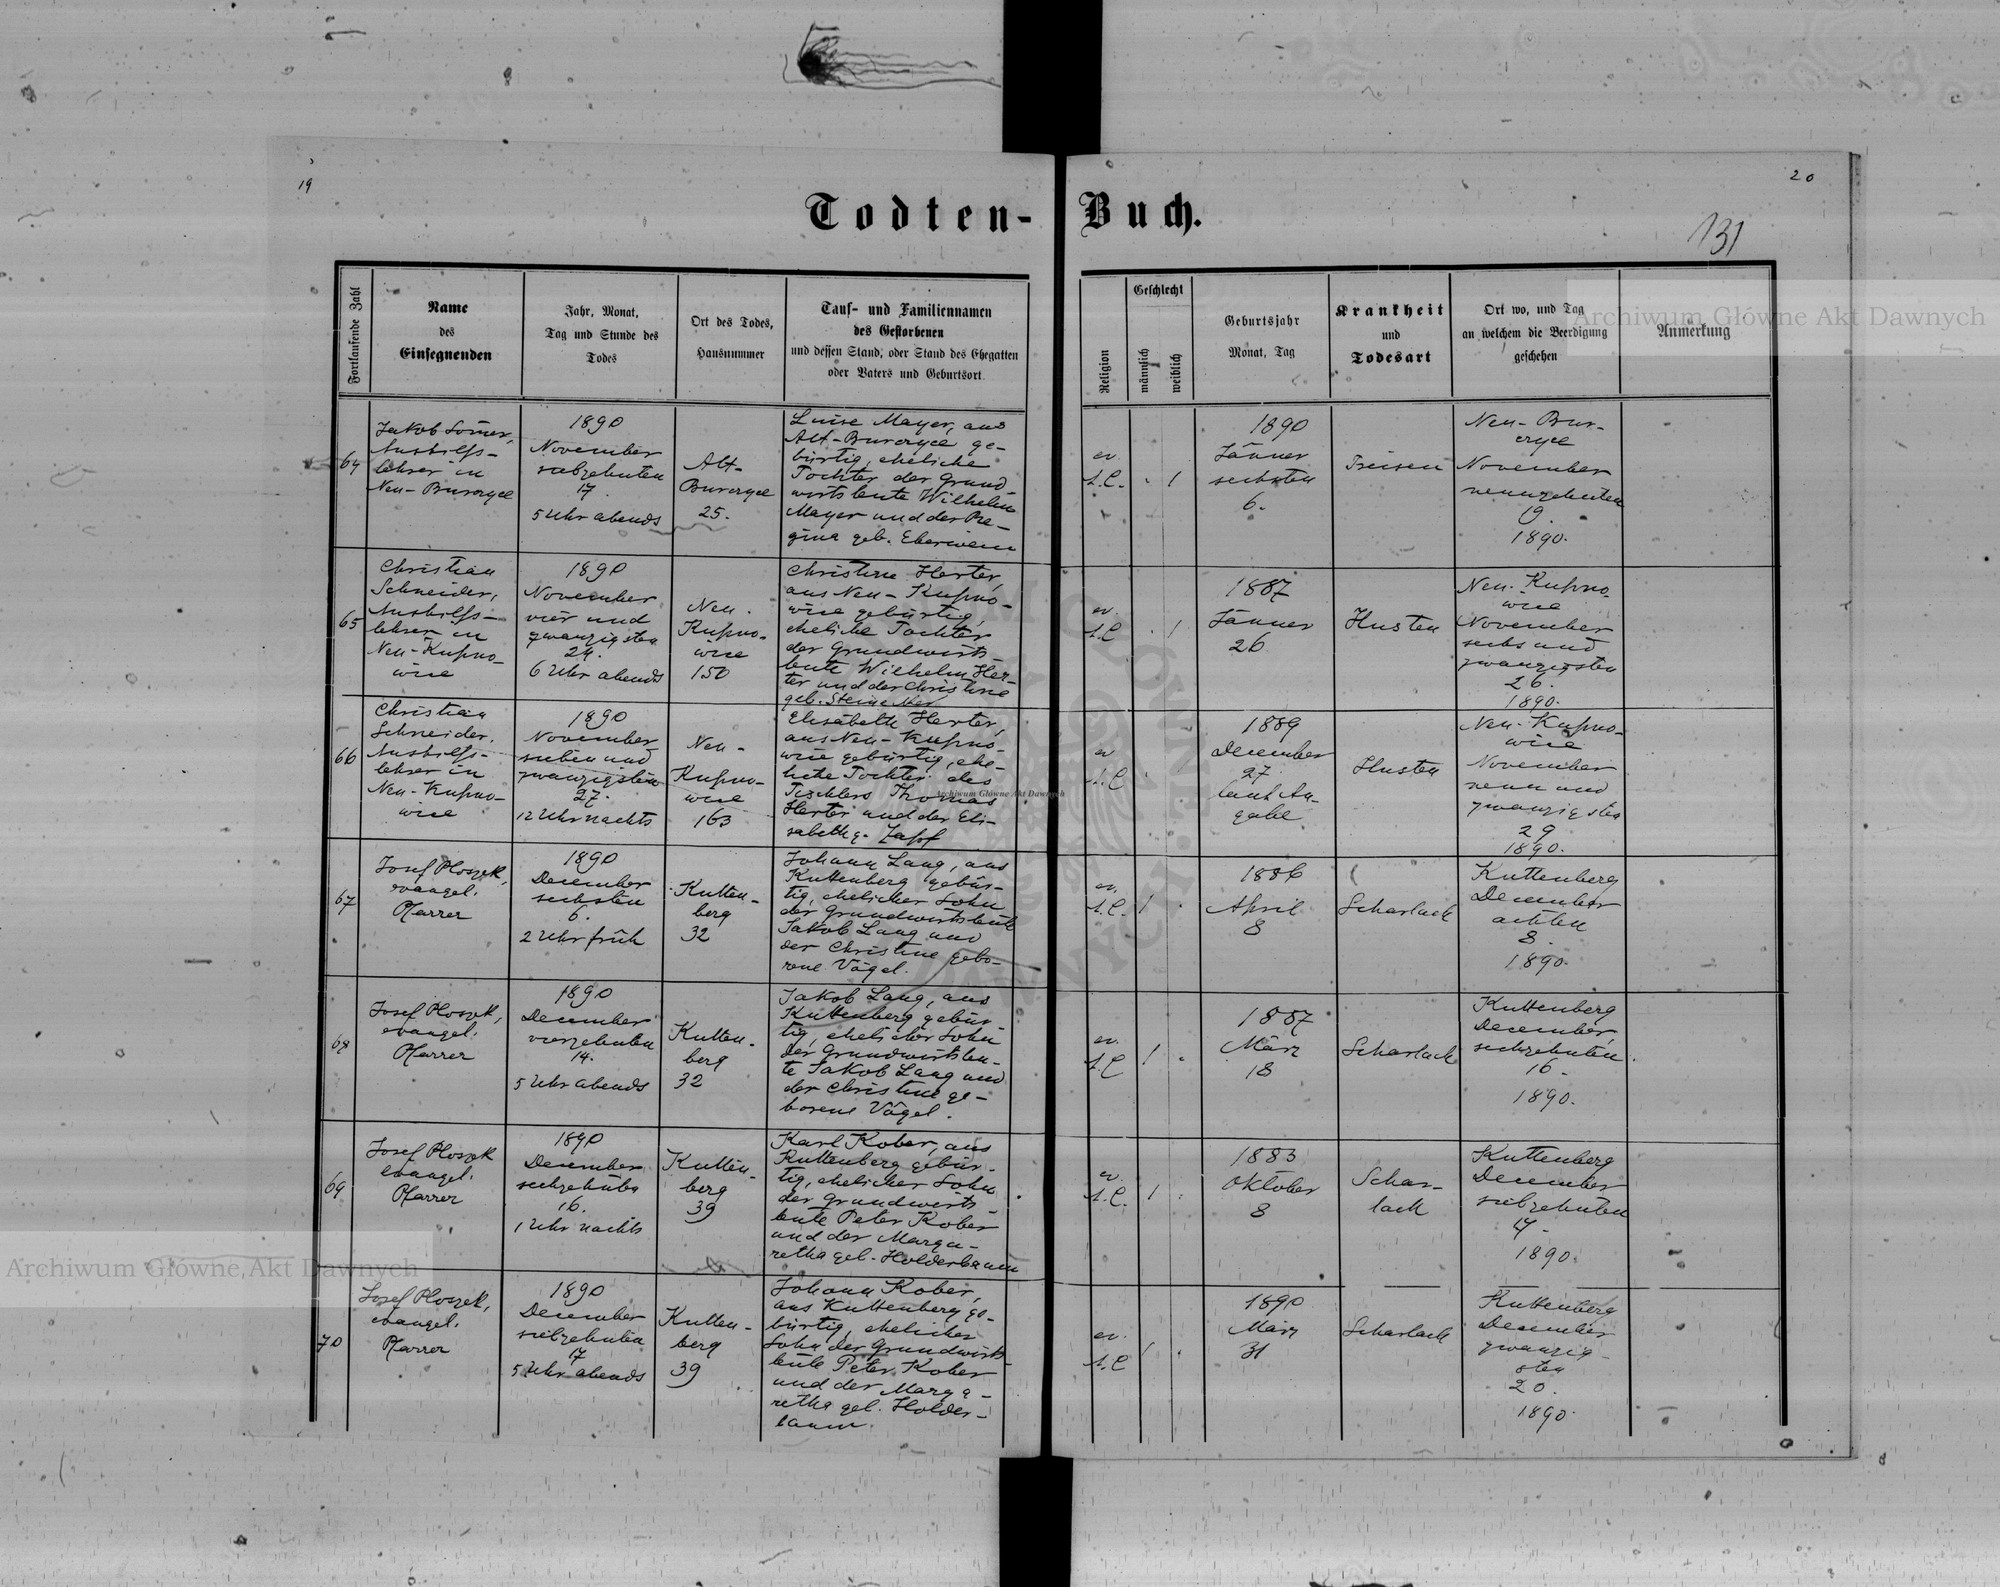 19
20
Todten-Buch.
131
Fortlaufende Zahl
Name
des
Einsegnenden
Jahr, Monat,
Tag und Stunde des
Todes
Ort des Todes,
Hausnummer
Tauf- und Familiennamen
des Gestorbenen
und dessen Stand, oder Stand des Ehegatten
oder Vaters und Geburtsort
Religion
Geschlecht
männlich
weiblich
Geburtsjahr
Monat, Tag
Krankheit
und
Todesart
Ort wo, und Tag
an welchem die Beerdigung
geschehen
Anmerkung
Archiwum Główne Akt Dawnych
64
Jakob
Aushilfs-
lehrer in
Neu-Burczyce
1890
November
siebzehnten
17.
5 Uhr abends
Alt-
Burczyce
25.
Luise Mayer, aus
Alt-Burczyce ge-
bürtig, eheliche
Tochter der Grund-
wirtsleute Wilhelm
Mayer und der Re-
gina geb. Eberwein
ev.
A.C.
1
1890
Jänner
sechsten
6.
Freisen
Neu-Bur-
czyce
November
neunzehnten
19.
1890.
65
Christian
Schneider,
Aushilfs-
lehrer in
Neu-Kupno-
wice
1890
November
vier und
zwanzigsten
24.
6 Uhr abends
Neu-
Kupno-
wice
150
Christine Herter,
aus Neu-Kupno-
wice gebürtig,
eheliche Tochter
der Grundwirts-
leute Wilhelm Her-
ter und der Christine
geb.
ev.
A.C
1
1887
Jänner
26
Husten
Neu-Kupno-
wice
November
sechs und
zwanzigsten
26.
1890.
66
Christian
Schneider,
Aushilfs-
lehrer in
Neu-Kupno-
wice
1890
November
sieben und
zwanzigsten
27.
12 Uhr nachts
Neu-
Kupno-
wice
163
Elisabeth Herter,
aus Neu-Kupno-
wice gebürtig, ehe-
liche Tochter des
Tischlers Thomas
Herter und der Eli-
sabeth g. Zapf
ev
A.C
1889
December
27
laut An-
gabe
Husten
Neu-Kupno-
wice
November
neun und
zwanzigsten
29
1890.
Archiwum Główne Akt Dawnych
67
Josef Ploszek,
evangel.
Pfarrer
1890
December
sechsten
6.
2 Uhr früh
Kutten-
berg
32
Johann Lang, aus
Kuttenberg gebür-
tig, ehelicher Sohn
der Grundwirtsleute
Jakob Lang und
der Christine gebo-
rene Vögel.
ev.
A.C.
1
1886
April
8
Scharlach
Kuttenberg
December
achten
8.
1890.
68
Josef Ploszek,
evangel.
Pfarrer
1890
December
vierzehnten
14.
5 Uhr abends
Kutten-
berg
32
Jakob Lang, aus
Kuttenberg gebür-
tig, ehelicher Sohn
der Grundwirtsleu-
te Jakob Lang und
der Christine ge-
borene Vögel.
ev.
A.C
1
1887
März
18
Scharlach
Kuttenberg
December,
sechzehnten.
16.
1890.
69
Josef Ploszek
evangel.
Pfarrer
1890
December
sechzehnten
16.
1 Uhr nachts
Kutten-
berg
39
Karl Kober, aus
Kuttenberg gebür-
tig, ehelicher Sohn
der Grundwirts-
leute Peter Kober
und der Marga-
retha geb. Holderbaum
ev.
A.C.
1
1883
Oktober
8
Schar-
lach
Kuttenberg
December
siebzehnten
17.
1890.
Archiwum Główne Akt Dawnych
70
Josef Ploszek,
evangel.
Pfarrer
1890
December
siebzehnten
17
5 Uhr abends
Kutten-
berg
39
Johann Kober,
aus Kuttenberg ge-
bürtig, ehelicher
Sohn der Grundwirts-
leute Peter Kober
und der Marga-
retha geb. Holder-
baum.
ev.
A.C
1
1890
März
31
Scharlach
Kuttenberg
December
zwanzig-
sten
20.
1890.